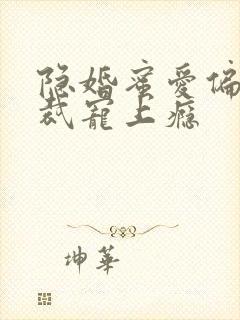 隐婚蜜爱偏
裁宠上瘾
坤華